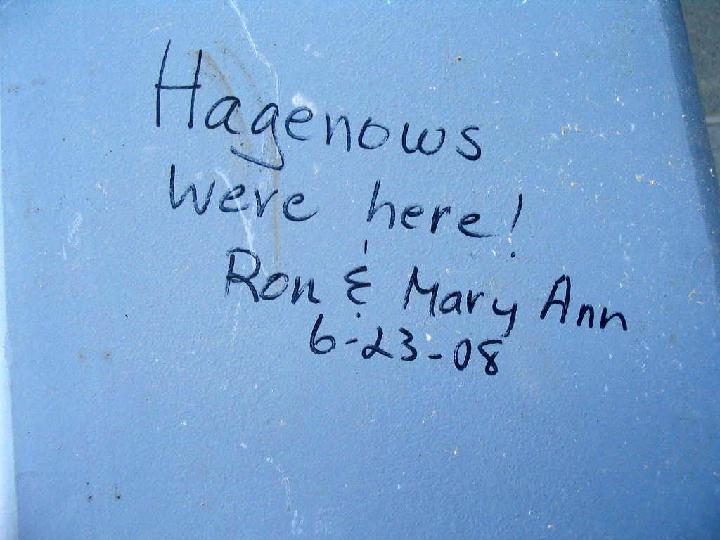 Hagenows
were here!
Ron & Mary Ann
6-23-08